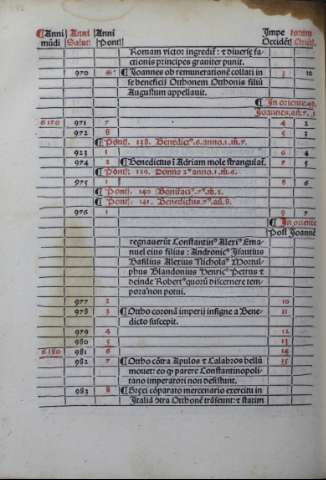 Anni mūdi Anni Salut: Anni Pont: Impe Occidēt: ratorum Oriēt.
Romam victor ingredit: ⁊ diuerse fa-
ctionis principes grauiter punit.
970 6 Joannes ob remunerationē collati in 3 10
se beneficii Othonem Othonis filiū
Augustum appellauit.
In oriente
Joannes
6170 971 7 4 2
972 8 5 3
Pont. 138. Benedict. 6. anno. 1. m̄. 6.
923 1 6 4
974 2 Benedictus ī Adriam mole strangulat. 7 5
Pont. 139. Donno 2. anno. 1. m̄. 6.
975 1 8 6
Pont. 140 Bonifaci. 7. m̄. 1.
Pont. 141. Benedictus. 7. an̄. 8.
976 1 9 7
In oriente
Post Joannē
regnauerūt Constantin⁹ Alexi⁹ Ema-
nuel eius filius: Andronic⁹ Isacius
Basilius Alexius Nicholas
phus Blandonius Henric⁹ Petrus ⁊
deinde Robert⁹ quorū discernere tem-
pora non potui.
977 2 10
978 3 Otho coronā imperii insigne a Bene- 11
dicto suscepit.
979 4 12
980 5 13
6180 981 6 14
982 7 Otho cōtra Apulos ⁊ Calabros bellū 15
mouet: eo ꝙ parere Constantinopoli-
tano imperatori non desistunt.
983 8 Greci cōparato mercenario exercitu in
Italiā Othonē trāseunt: ⁊ statim